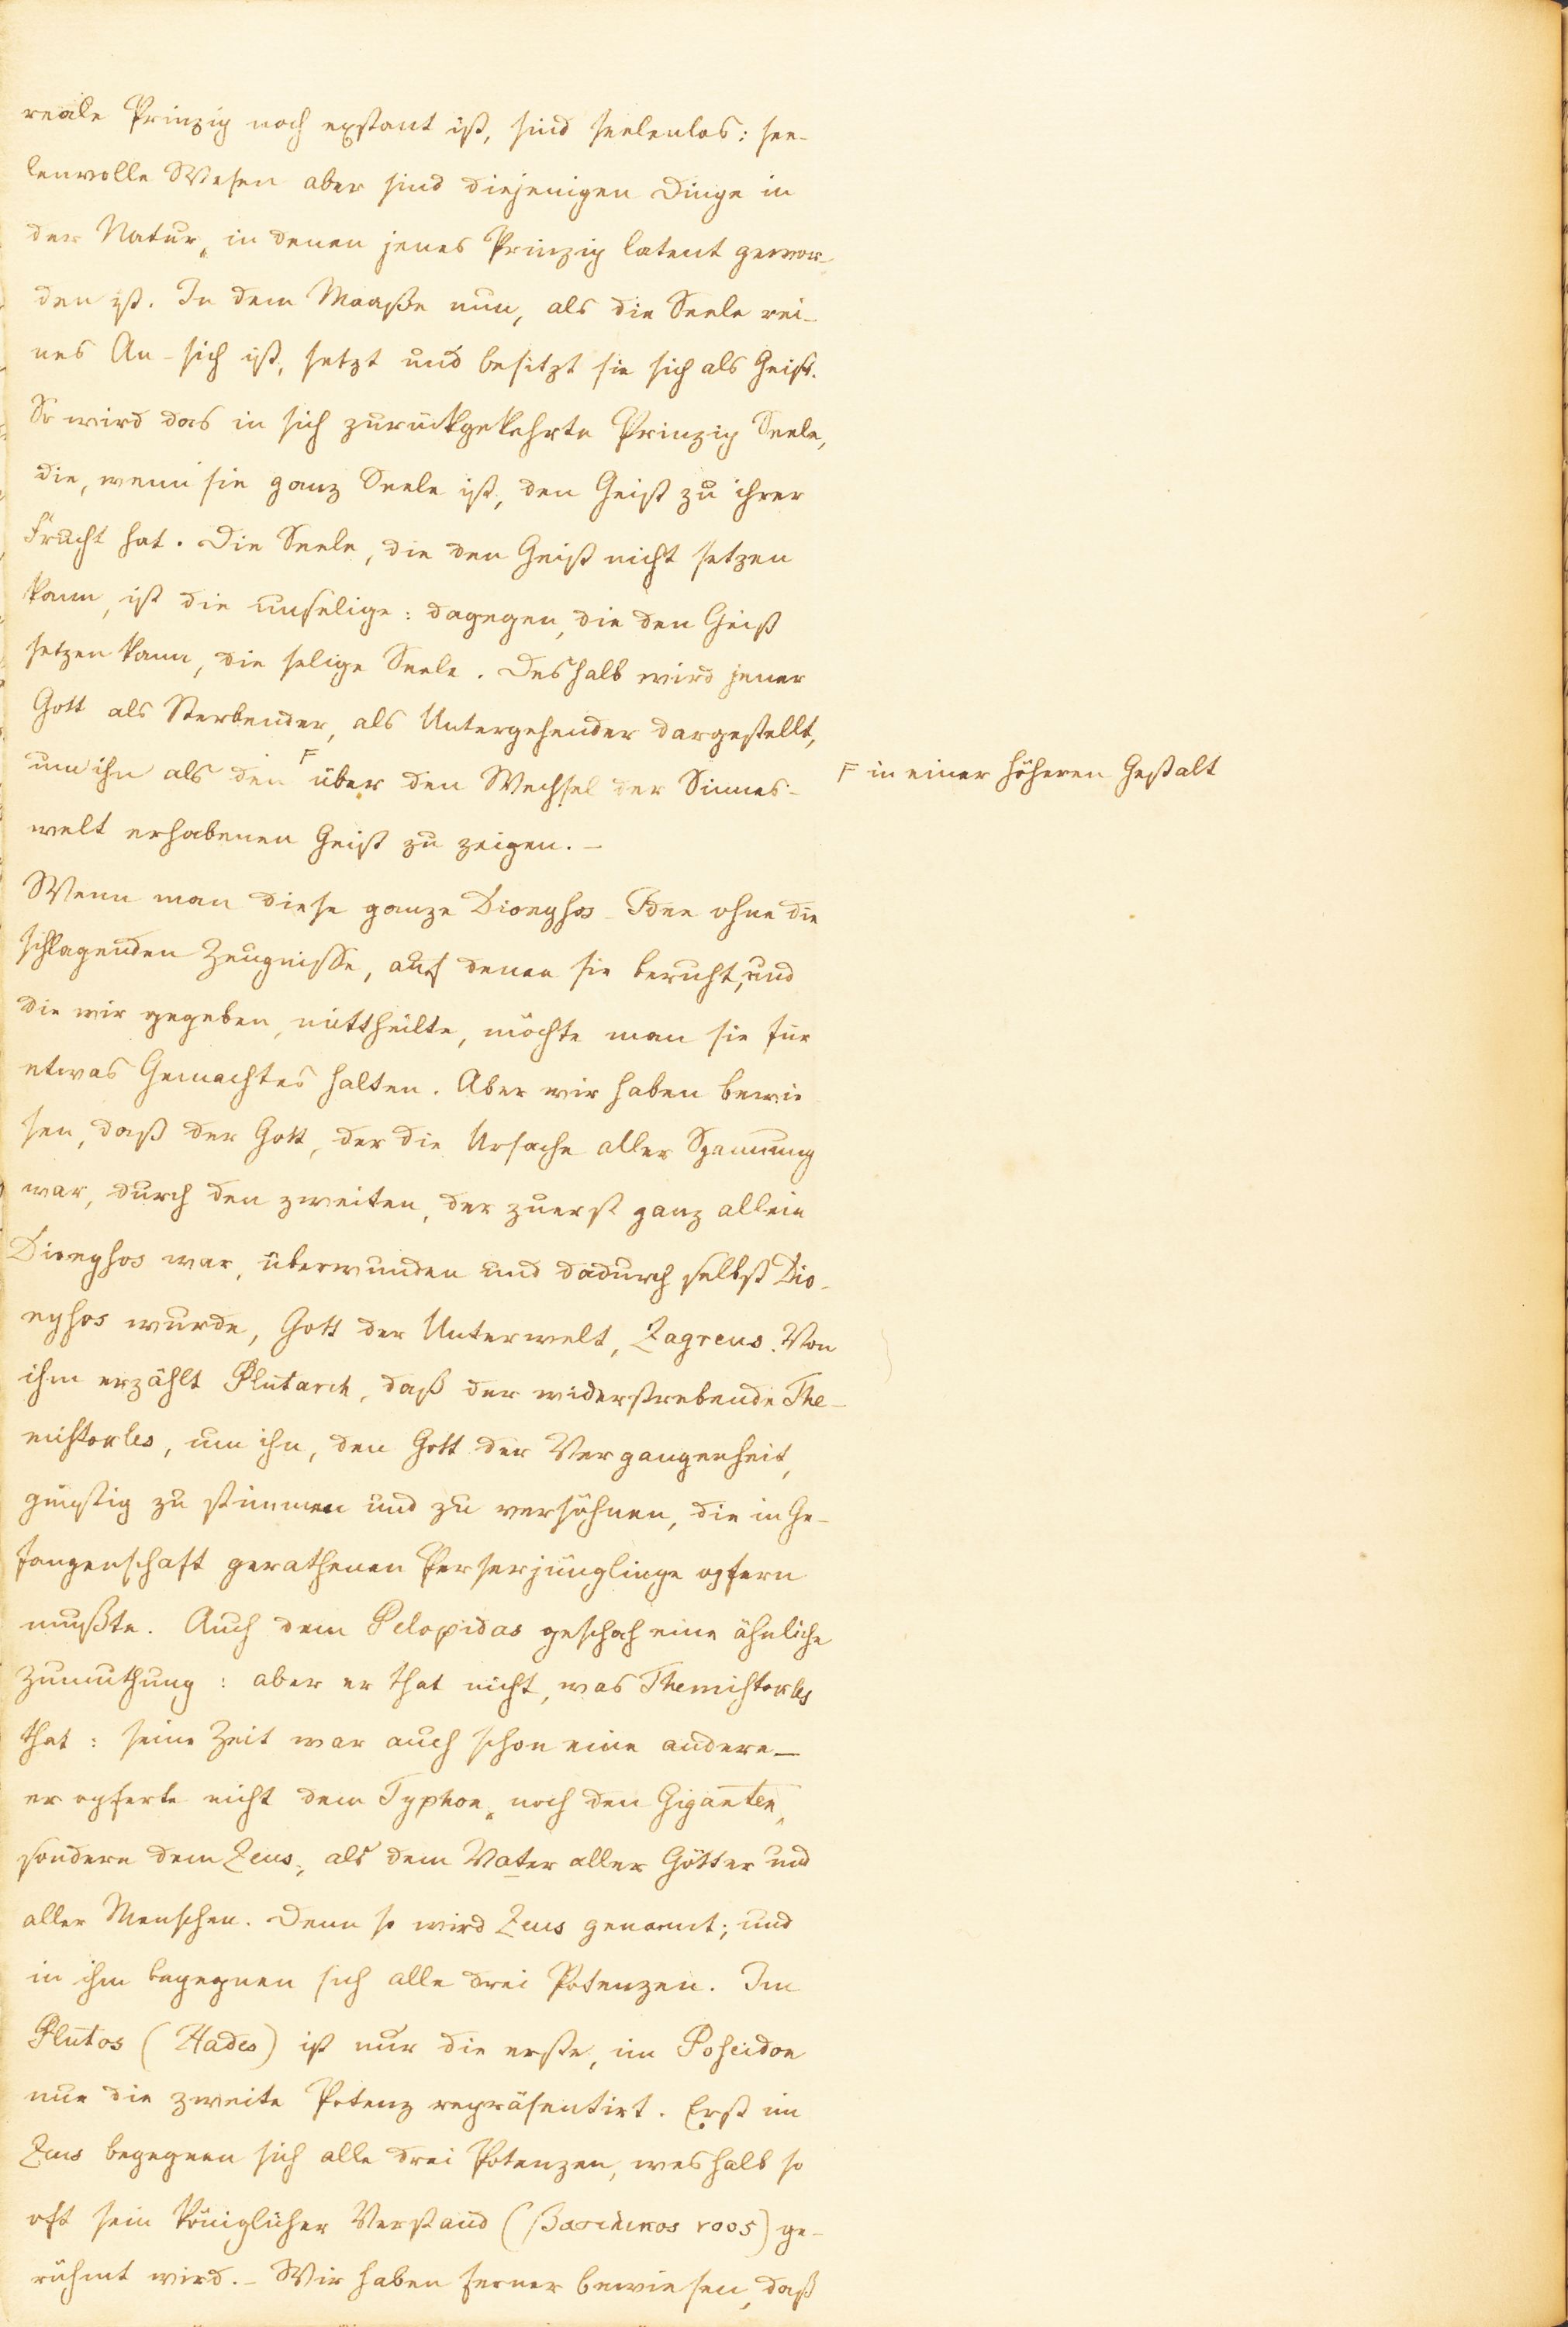 reale Prinzip noch exstant ist, sind seelenlos: see-
lenvolle Wesen aber sind diejenigen Dinge in
der Natur, in denen jenes Prinzip latent gewor-
den ist. In dem Maaße nun, als die Seele rei-
nes An-sich ist, setzt und besitzt sie sich als Geist.
So wird das in sich zurückgekehrte Prinzip Seele,
die, wenn sie ganz Seele ist, den Geist zu ihrer
Frucht hat. Die Seele, die den Geist nicht setzen
kann, ist die unselige: dagegen, die den Geist
setzen kann, die selige Seele. Deshalb wird jener
Gott als Sterbender, als Untergehender dargestellt,
um ihn als den F über den Wechsel der Sinnes-
F in einer höheren Gestalt
welt erhabenen Geist zu zeigen. –
Wenn man diese ganze Dionysos-Idee ohne die
schlagenden Zeugnisse, auf denen sie beruht, und
die wir gegeben, mittheilte, möchte man sie für
etwas Gemachtes halten. Aber wir haben bewie
sen, daß der Gott, der die Ursache aller Spannung
war, durch den zweiten, der zuerst ganz allein
Dionysos war, überwunden und dadurch selbst Dio-
nysos wurde, Gott der Unterwelt, Zagreus. Von
ihm erzählt Plutarch, daß der widerstrebende The-
mistokles, um ihn, den Gott der Vergangenheit,
günstig zu stimmen und zu versöhnen, die in Ge-
fangenschaft gerathenen Perserjünglinge opfern
mußte. Auch dem Pelopidas geschah eine ähnliche
Zumuthung: aber er that nicht, was Themistokles
that: seine Zeit war auch schon eine andere –
er opferte nicht dem Typhon, noch den Giganten,
sondern dem Zeus, als dem Vater aller Götter und
aller Menschen. Denn so wird Zeus genannt; und
in ihm begegnen sich alle drei Potenzen. Im
Plutos (Hades) ist nur die erste, im Poseidon
nur die zweite Potenz repräsentirt. Erst im
Zeus begegnen sich alle drei Potenzen, weshalb so
oft sein königlicher Verstand (βασιλικος νοος) ge-
rühmt wird. – Wir haben ferner bewiesen, daß